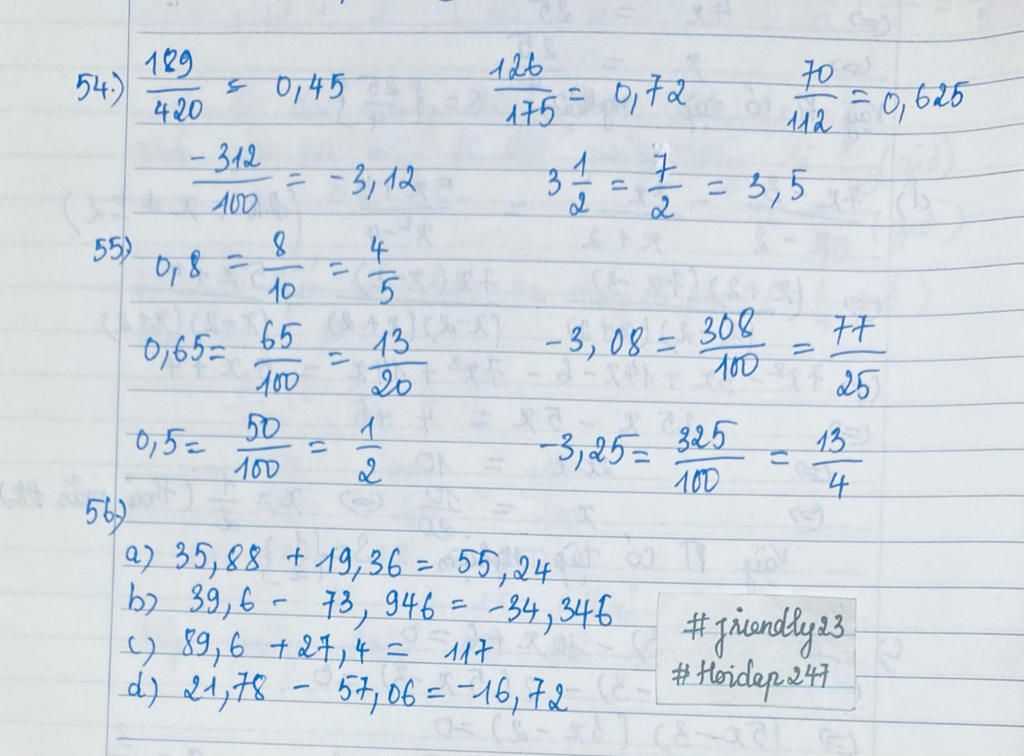 54.) 189/420 = 0,45 126/175 = 0,72 70/112 = 0,625
-312/100 = -3,12 3 1/2 = 7/2 = 3,5
55) 0,8 = 8/10 = 4/5
0,65 = 65/100 = 13/20 -3,08 = 308/100 = 77/25
0,5 = 50/100 = 1/2 -3,25 = 325/100 = 13/4
56.)
a) 35,88 + 19,36 = 55,24
b) 39,6 - 73,946 = -34,346
c) 89,6 + 27,4 = 117
d) 21,78 - 57,06 = -16,72
# friendly23
# Hoidap247